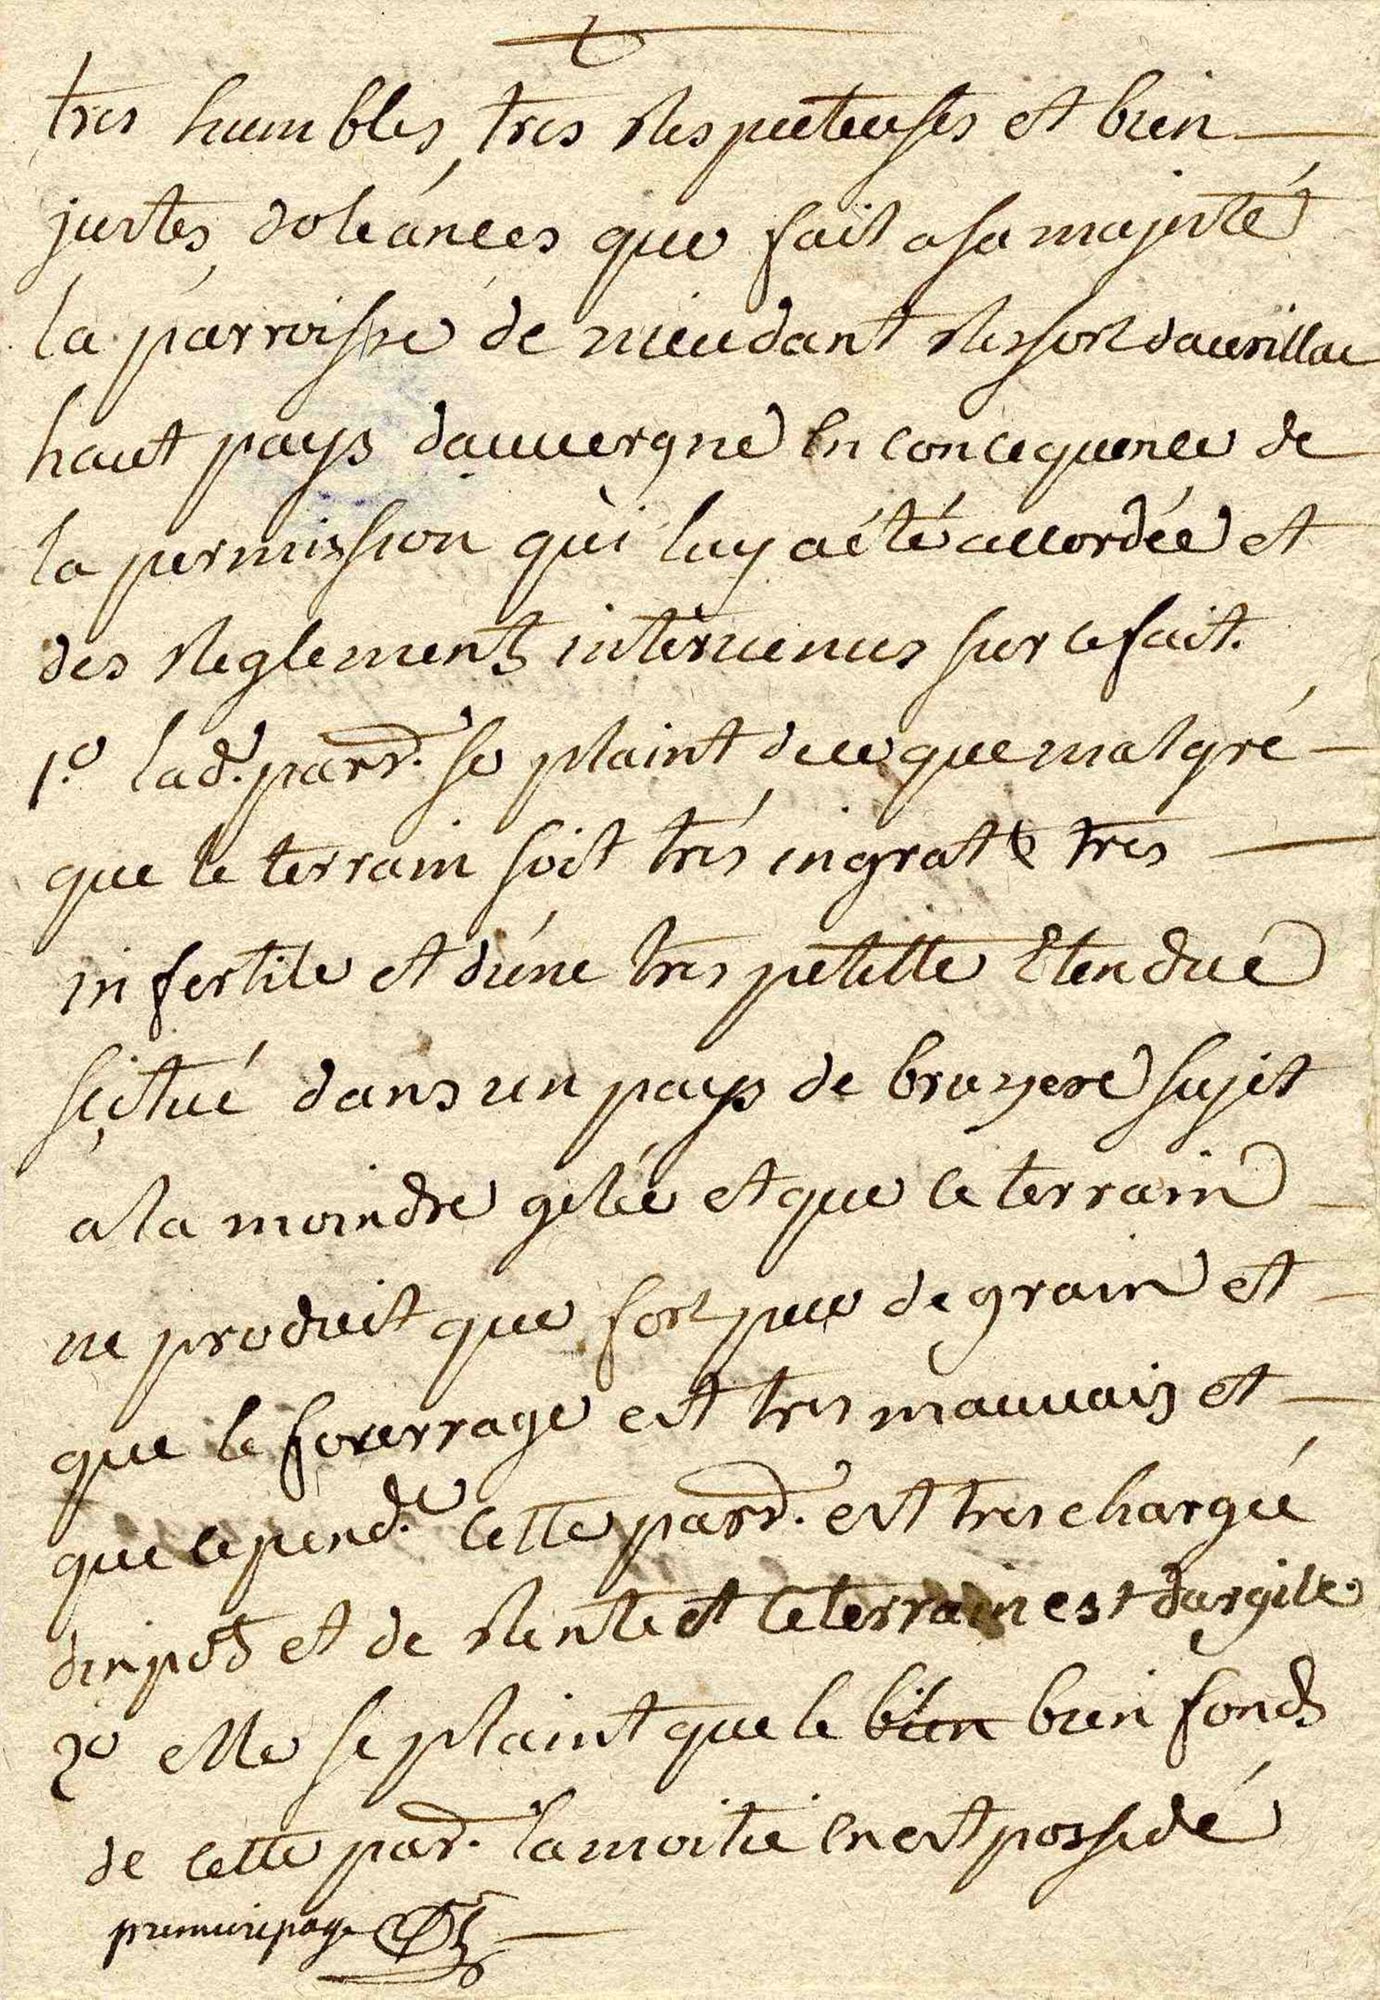 tres humbles, tres respectueuses et bien
justes, doleánces que fait a sa majesté
la parroisse de nieudant ressort daurillac
haut pays dauvergne en concequence de
la permission qùi luy a été accordée et
des reglements intervenus sur ce fait.
1.º lad. parr. se plaint de ce que malgré
que le terrain soit trés ingrat & tres
infertile et dúne tres petitte Etendue
scitué dans un pays de bruyere sujet
a la moindre gelée et que ce terrain
ne produit que fort peu de grain et
que le fourrage est tres mauvais et
que cepend.t cette parr. est tres chargée
dinpôt et de rente et le terrain est dargile
2º elle se plaint que le bien bien fonds
de cette par. la moitié en est possedé
premiere page